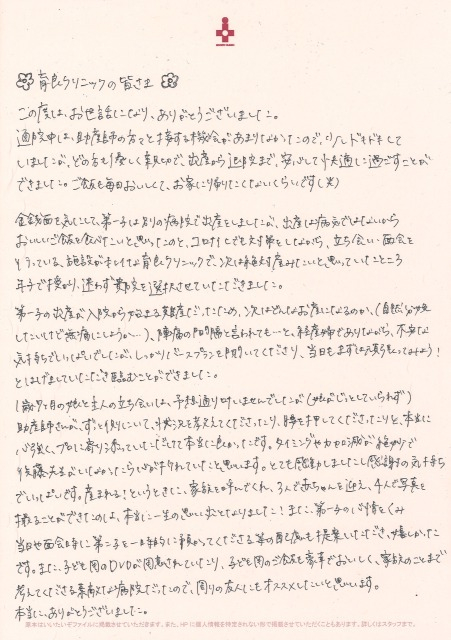 育良クリニックの皆さま
この度は、お世話になり、ありがとうございました。
通院中は、助産師の方々と接する機会があまりなかったので、少しドキドキして
しましたが、どの方も優しく親切で、出産から退院まで、安心して快適に過ごすことが
できました。ご飯も毎日おいしくて、お家に帰りたくないくらいです(笑)
金銭面を気にして、第一子は別の病院で出産をしましたが、出産は病気ではないから
おいしいご飯を食べたいと思ったのと、コロナ禍でも対策をしながら、立ち会い・面会を
行っている、施設がきれいな育良クリニックで、次は絶対産みたいと思っていたところ
年子で授かり、迷わず貴院を選択させていただきました。
第一子の出産が入院から始まる難産だったため、次はどんなお産になるのか、(自然分娩
したいけど無痛にしようか…)、陣痛の間隔と言われても…と、経産婦でありながら、不安な
気持ちでいっぱいでしたが、しっかりバースプランを聞いてくださり、当日もまずは頑張ってみよう!
とはげましていただき臨むことができました。
1歳 ヶ月の娘と主人の立ち会いは、予想通り けしませんでしたが(娘がじっとしていられず)
助産師さんが、ずっと側にいて、状況を教えてくださったり、腰を押してくださったりと、本当に
心強く、プロに寄り添っていただけて本当に良かったです。タイミングや力加減が絶妙で
後藤先生がいなかったら心が折れていたと思います。とても感動しましたし感謝の気持ち
でいっぱいです。産まれる!というときに、家族を呼んでくれ、3人で赤ちゃんを迎え、4人で写真を
撮ることができたのは、本当に一生の思い出となりました!また、第一子の
当日や面会時に第二子を一時的に預かってくださる等の配慮も提案いただき、嬉しかった
です。また、子ども用のDVDが用意されていたり、子ども用のご飯も豪華でおいしく、家族のことまで
考えてくださる素敵な病院だったので、周りの友人にもオススメしたいと思います。
本当に、ありがとうございました。
※本はいいたいぞファイルに掲載させていただきます。また、HPに個人情報を特定されない形で掲載させていただくこともあります。詳しくはスタッフまで。